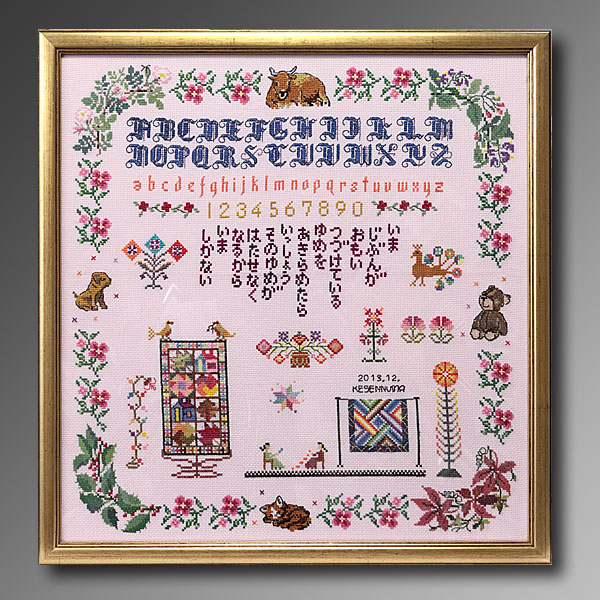 ABCDEFGHIJKLM
NOPQRSTUVWXYZ
abcdefghijklmnopqrstuvwxyz
1234567890
いま
じぶんが
おもい
つづけている
ゆめを
あきらめたら
いっしょう
そのゆめが
はたせなく
なるから
いま
しかない
2013,12,
KESENNUMA